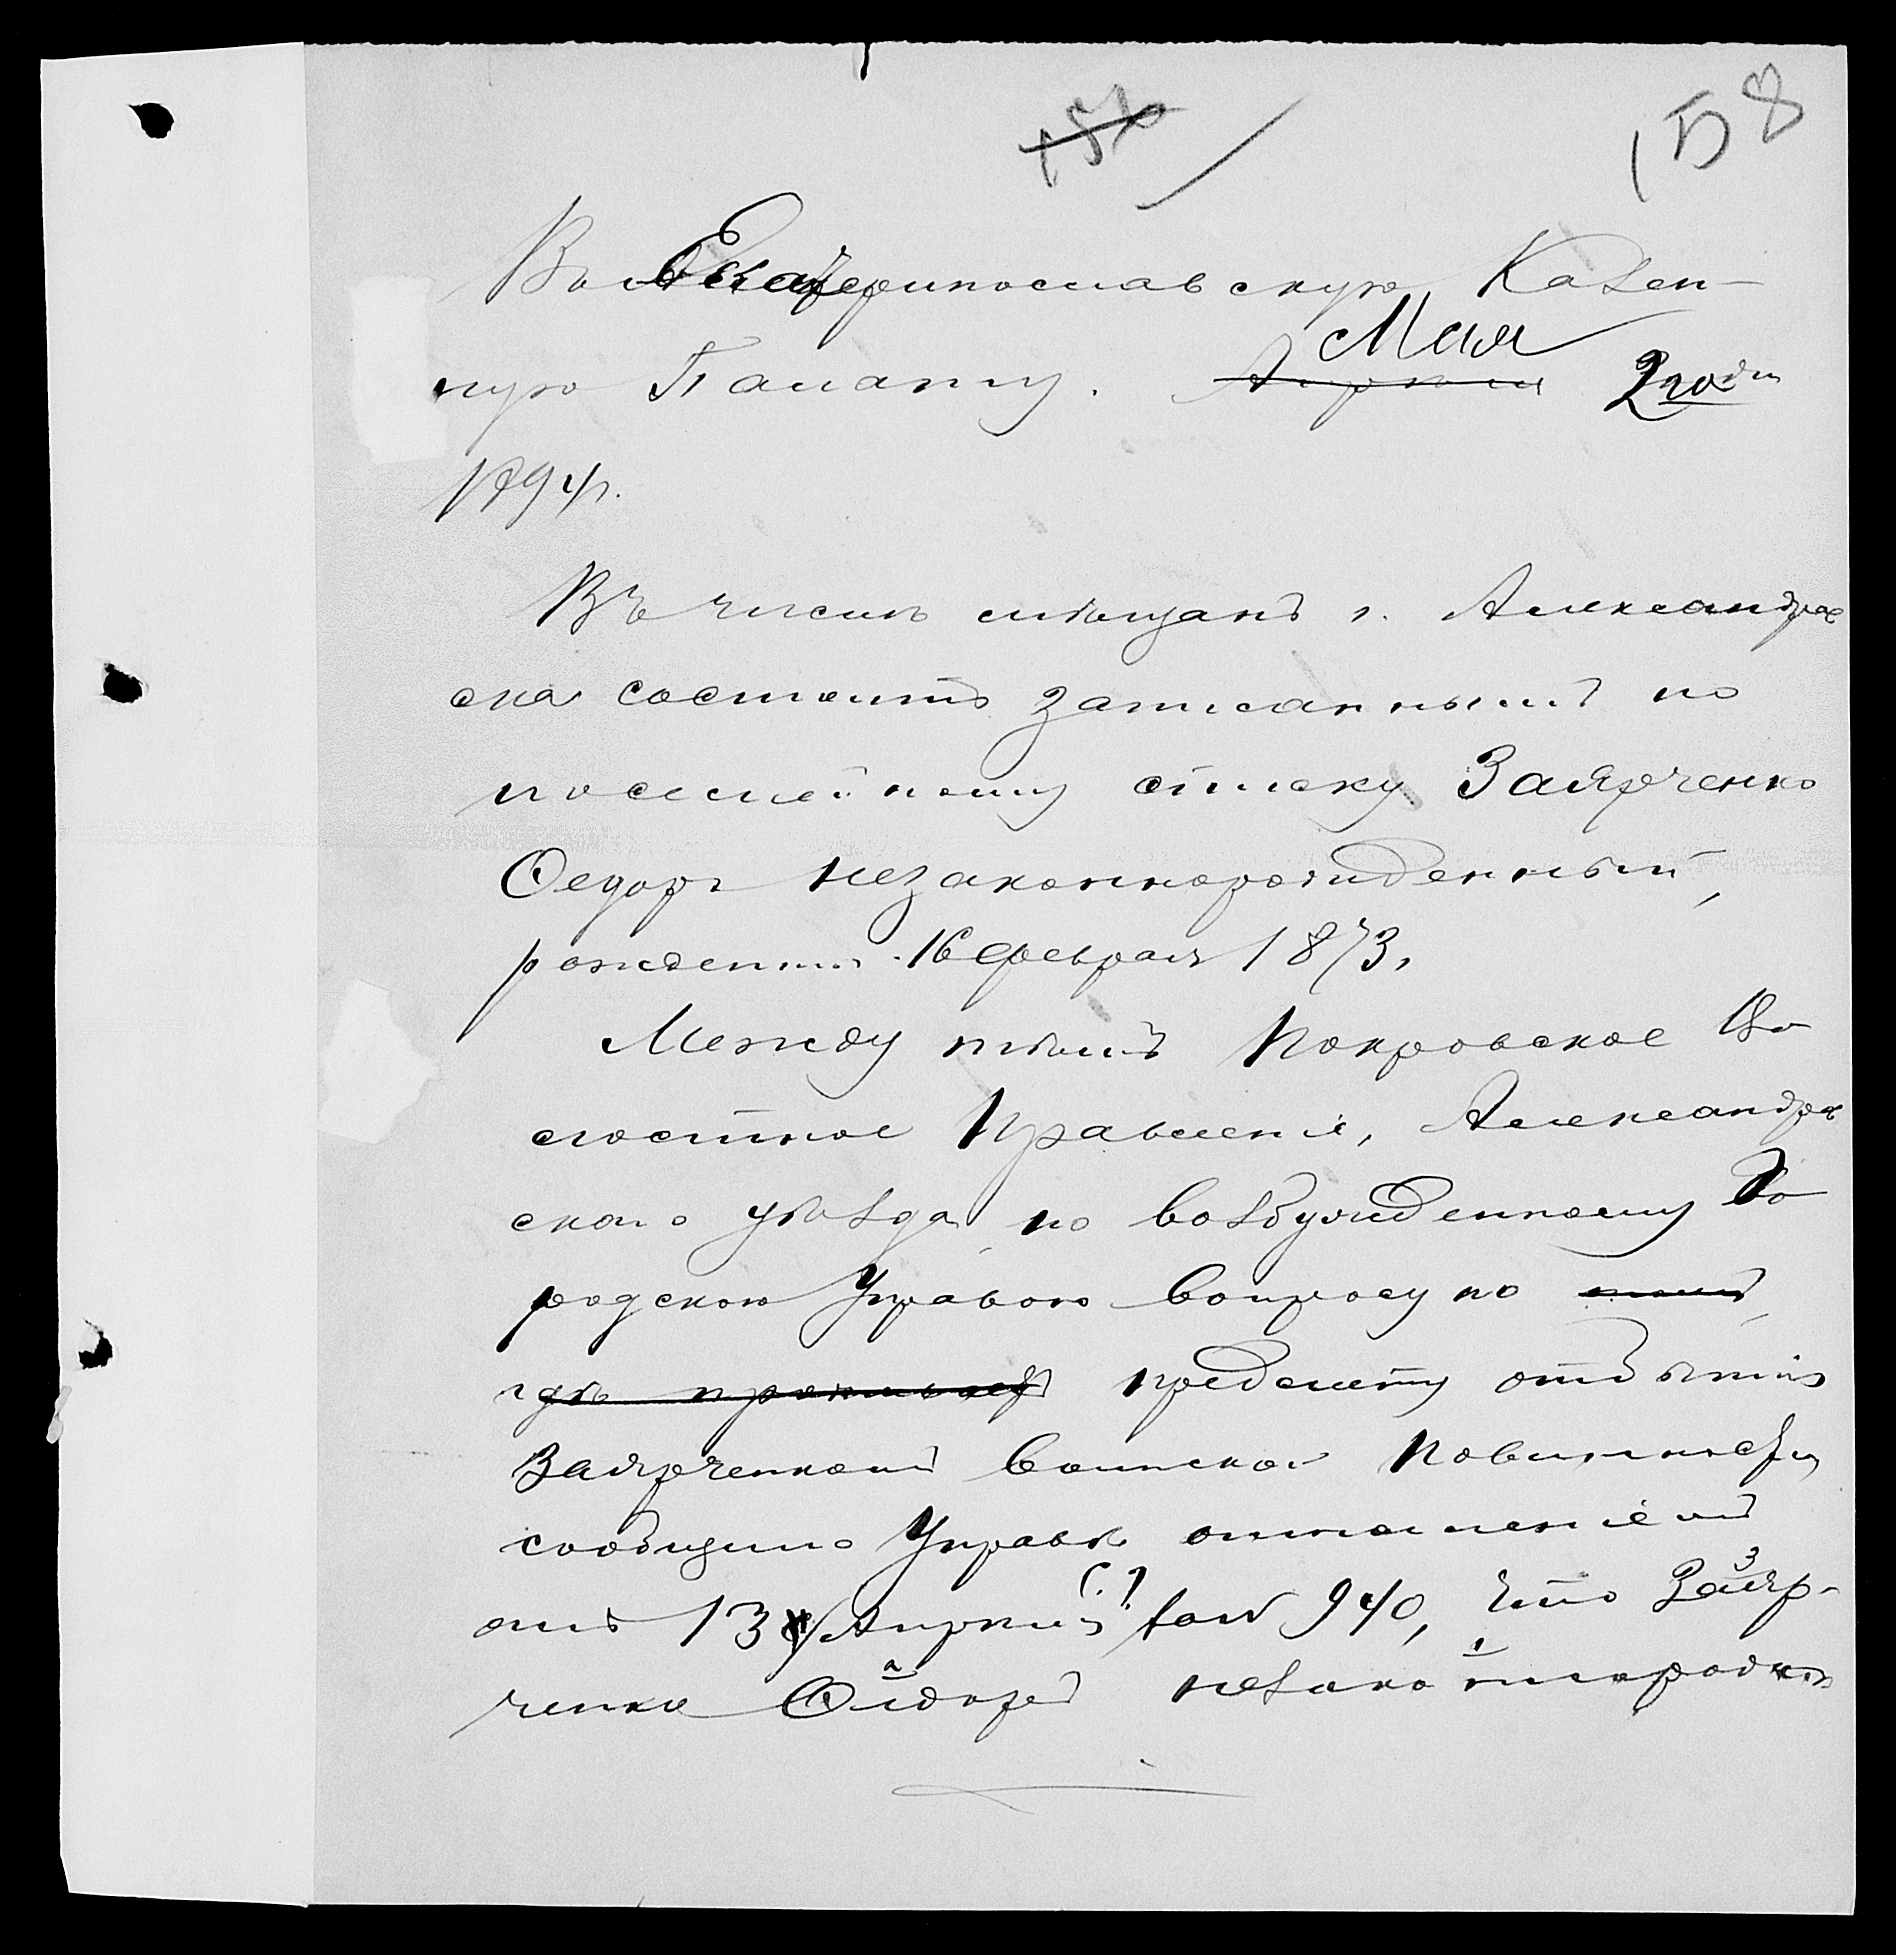 158
Въ Екатеринославскую Казен-
ную Палату. Мая
1894 г.
Въ числѣ мѣщанъ г. Александров
ска состоитъ записаннымъ по
посемейному списку Заярченко
Ѳедоръ незаконнорожденный,
рожденный 16 февраля 1873,
Между тѣмъ Покровское Во
лостное Правленіе, Александров
скаго уѣзда, по возбужденному Го
родскою Управою вопросу по
гдѣ проживаетъ предмету отбытія
Заярченкомъ воинской повинности
сообщило Управѣ отношеніемъ
отъ 13 Апрѣля за № 940, что Заяр-
ченко Ѳедоръ